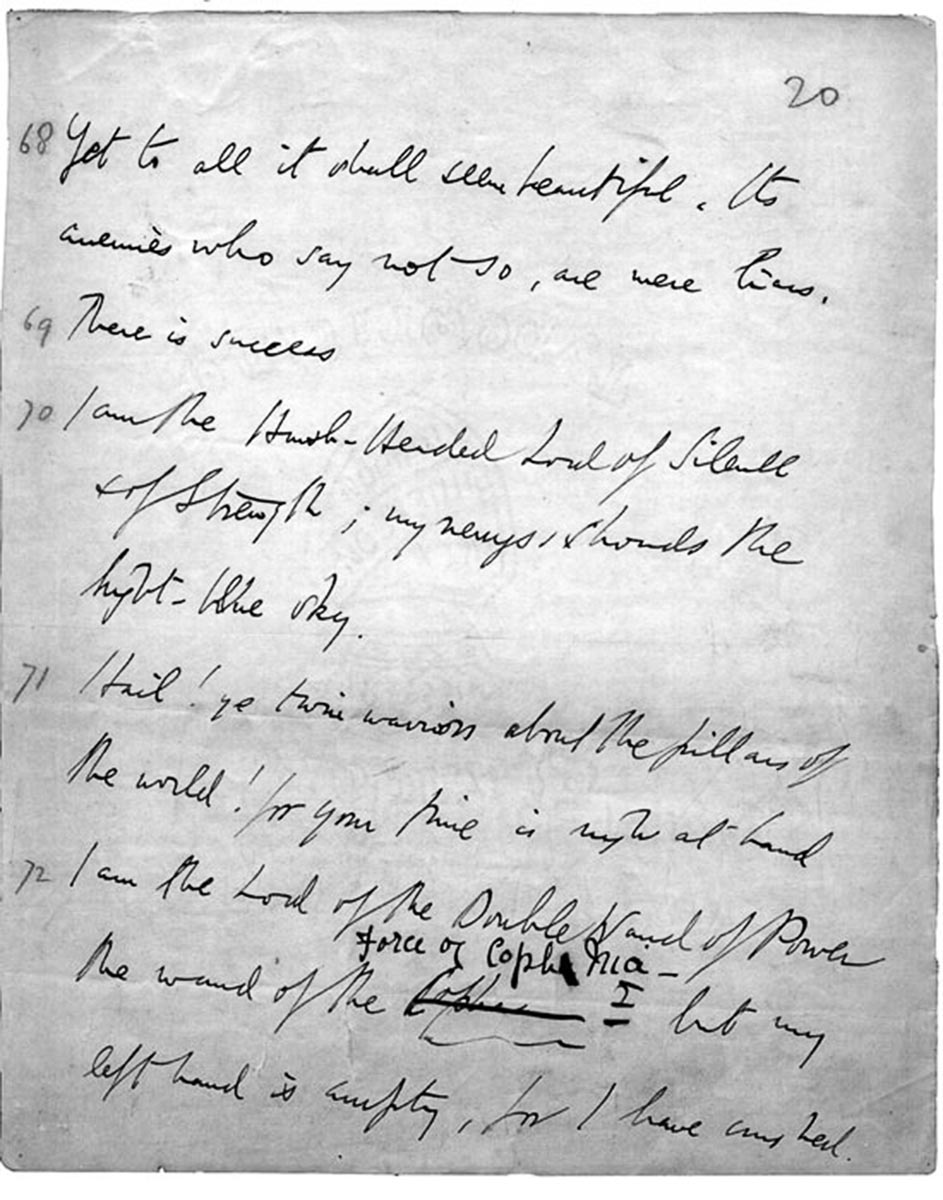 20
68 Yet to all it shall seem beautiful. Its
enemies who say not so, are mere liars.
69 There is success
70 I am the Hawk-Headed Lord of Silence
& of Strength ; my nemyss shrouds the
night-blue sky.
71 Hail! ye twin warriors about the pillars of
the world! for your time is nigh at hand
72 I am the Lord of the Double Wand of Power
Force of Coph Nia -
the wand of the but my
left hand is empty, for I have crushed